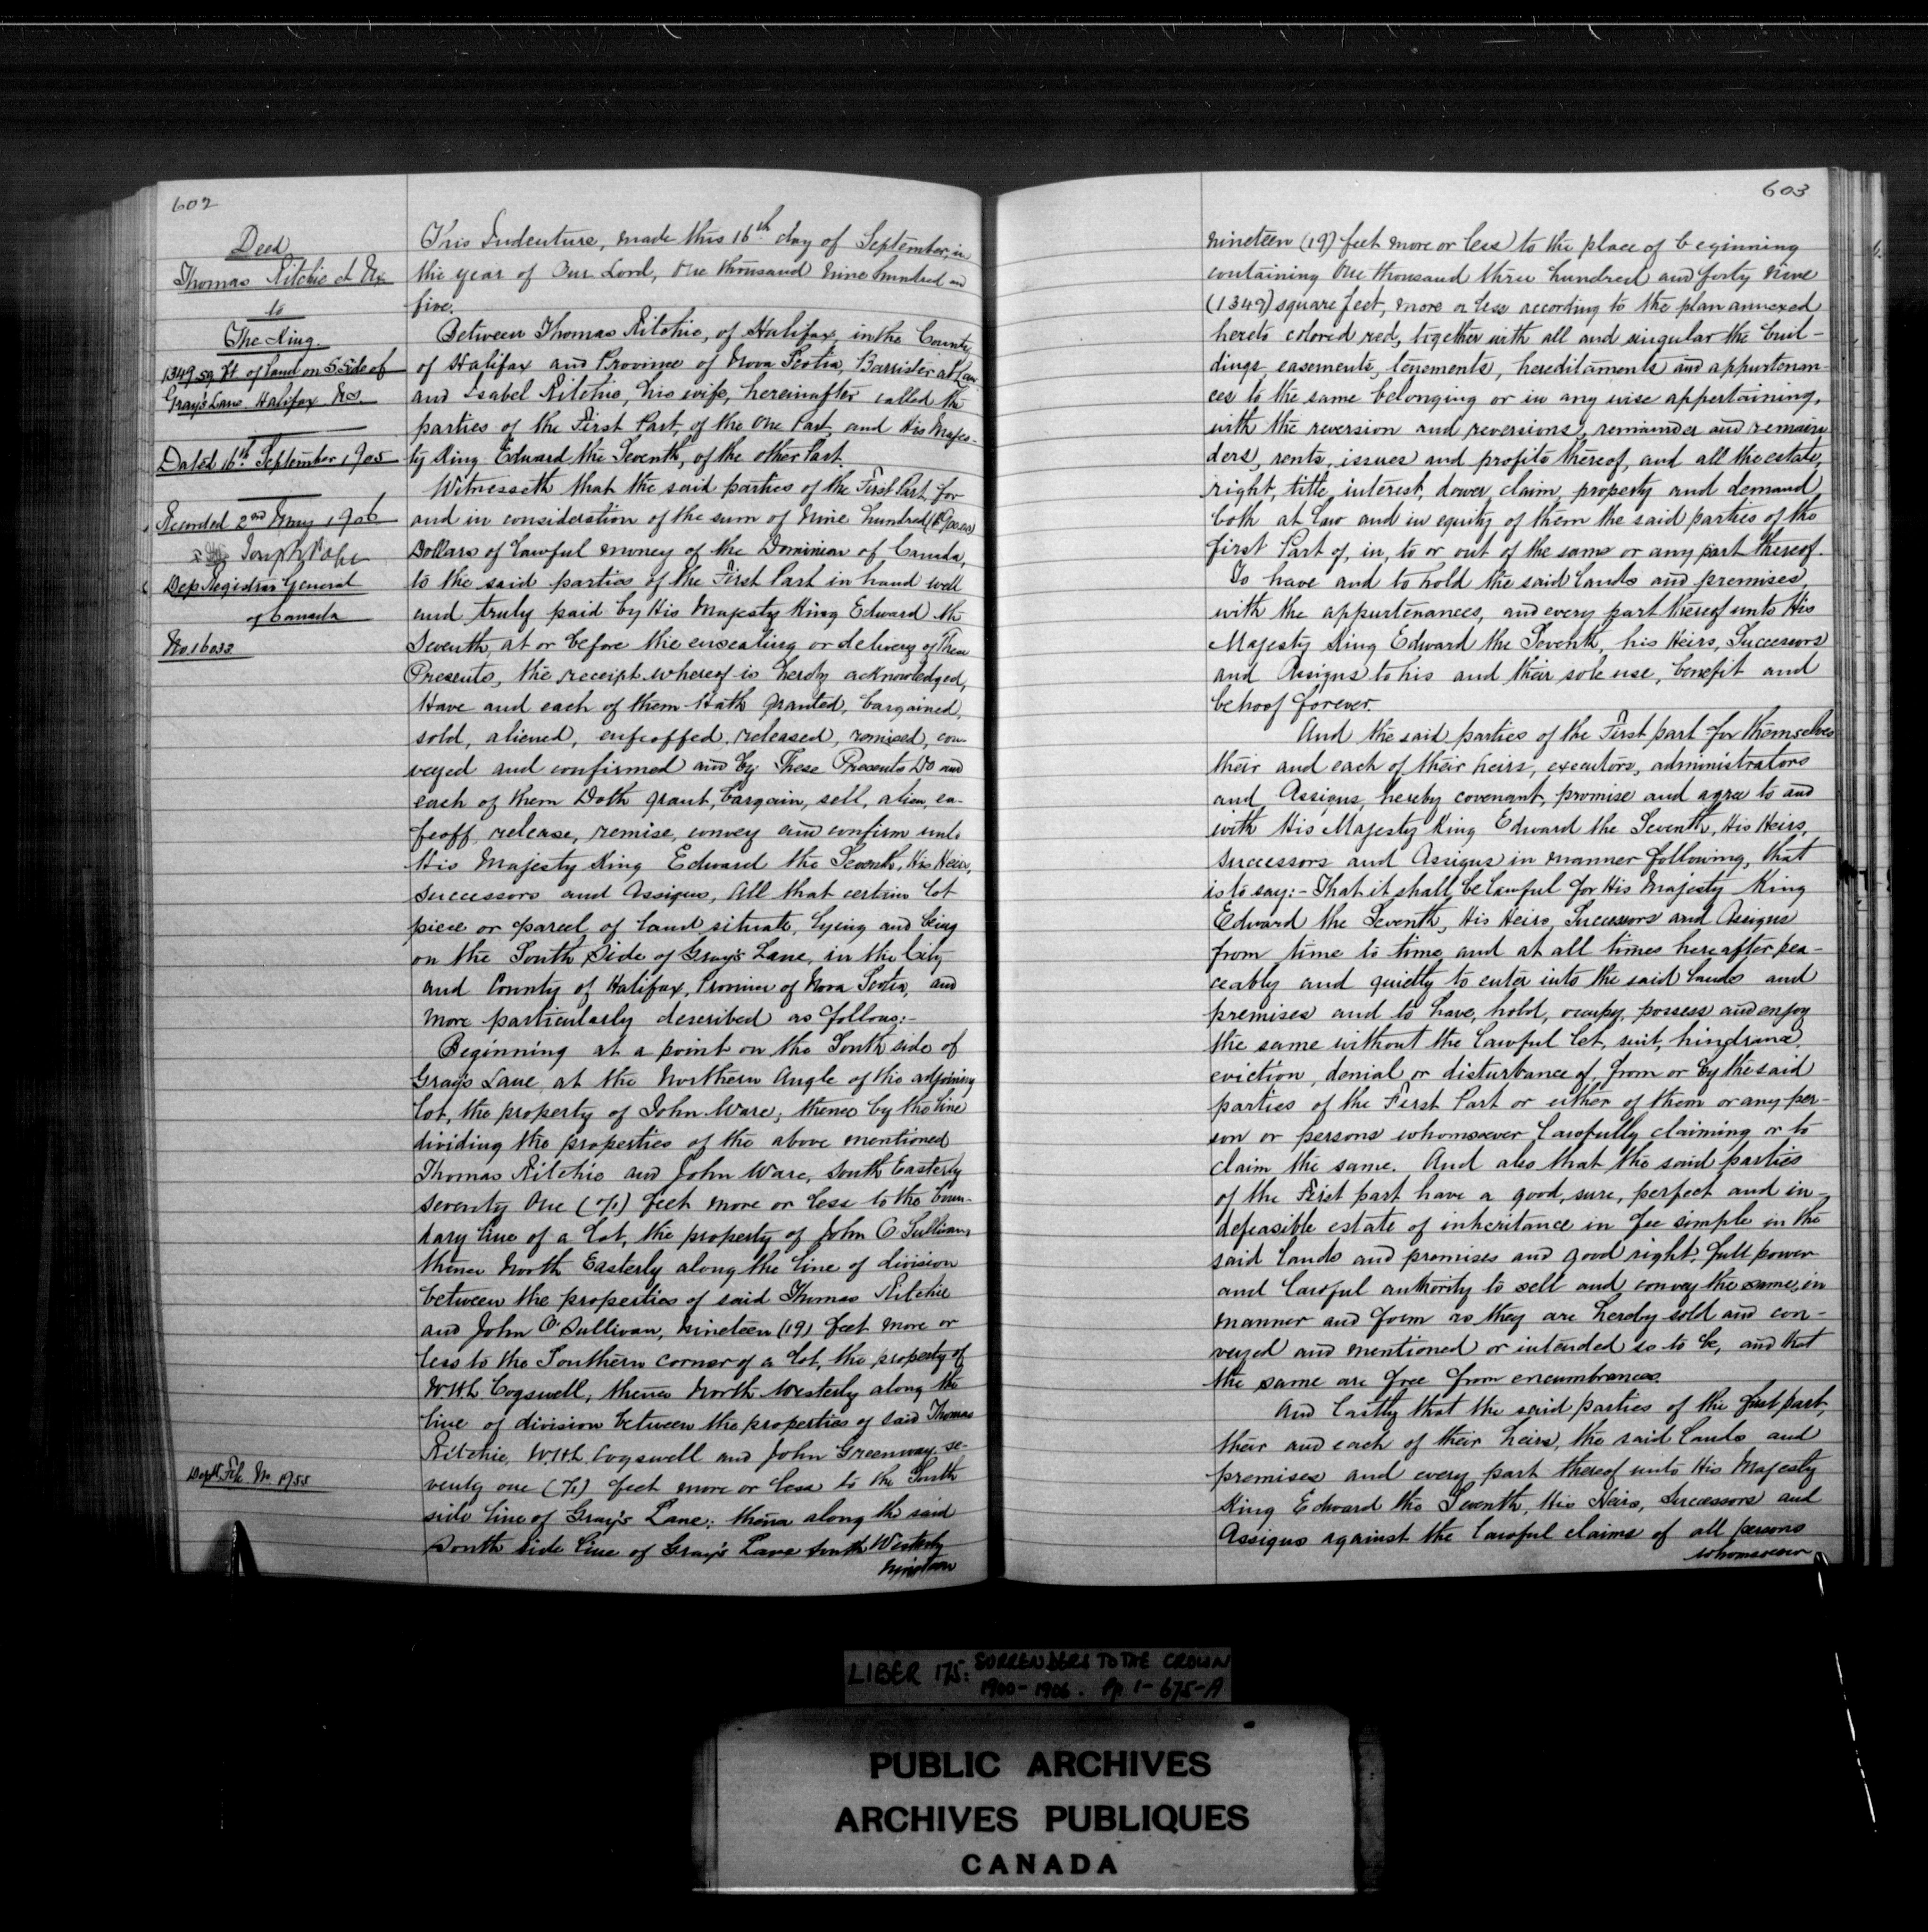 602
Deed
Thomas Ritchie et Ux
to
The King.
1349 sq. ft of land on S Side of
Gray's Lane. Halifax N.S.
Dated 16th September 1905
Recorded 2nd May 1906
Joseph Pope
Dep Registrar General
of Canada
No. 16033
Dept. File No. 1955
This Indenture, made this 16th day of September, in
the year of Our Lord, One thousand Nine hundred and
five.
Between Thomas Ritchie, of Halifax, in the County
of Halifax and Province of Nova Scotia, Barrister at Law
and Isabel Ritchie, his wife, hereinafter called the
parties of the First Part, of the One Part, and His Majes-
ty King Edward the Seventh, of the other Part.
Witnesseth that the said parties of the First Part for
and in consideration of the sum of Nine hundred ($900.00)
Dollars of lawful money of the Dominion of Canada,
to the said parties of the First Part in hand well
and truly paid by His Majesty King Edward the
Seventh, at or before the ensealing or delivery of These
Presents, the receipt whereof is hereby acknowledged,
Have and each of them Hath granted, bargained,
sold, aliened, enfeoffed, released, remised, con-
veyed and confirmed and by These Presents Do and
each of them Doth grant, bargain, sell, alien, en-
feoff, release, remise, convey and confirm unto
His Majesty King Edward the Seventh, His Heirs,
Successors and Assigns, All that certain lot
piece or parcel of land situate, lying and being
on the South Side of Gray's Lane, in the City
and County of Halifax, Province of Nova Scotia, and
more particularly described as follows:-
Beginning at a point on the South side of
Gray's Lane at the Northern Angle of the adjoining
lot, the property of John Ware; thence by the line
dividing the properties of the above mentioned
Thomas Ritchie and John Ware, South Easterly
seventy One (71) feet more or less to the boun-
dary line of a lot, the property of John O'Sullivan,
thence North Easterly along the line of division
between the properties of said Thomas Ritchie
and John O'Sullivan, nineteen (19) feet more or
less to the Southern corner of a lot, the property of
W.H.L. Cogswell; thence North Westerly along the
line of division between the properties of said Thomas
Ritchie, W.H.L. Cogswell and John Greenway se-
venty one (71) feet more or less to the South
side line of Gray's Lane; thence along the said
South side line of Gray's Lane South Westerly
nineteen
603
nineteen (19) feet more or less to the place of beginning
containing One thousand three hundred and forty nine
(1349) square feet, more or less according to the plan annexed
hereto colored red, together with all and singular the buil-
dings easements, tenements, hereditaments and appurtenan-
ces to the same belonging or in any wise appertaining,
with the reversion and reversions, remainder and remain-
ders, rents, issues and profits thereof, and all the estate,
right, title, interest, dower, claim, property and demand
both at law and in equity of them the said parties of the
first Part of, in, to or out of the same or any part thereof.
To have and to hold the said lands and premises,
with the appurtenances, and every part thereof unto His
Majesty King Edward the Seventh, his Heirs, Successors
and Assigns to his and their sole use, benefit and
behoof forever.
And the said parties of the First part for themselves
their and each of their heirs, executors, administrators
and Assigns, hereby covenant, promise and agree to and
with His Majesty King Edward the Seventh, His Heirs,
Successors and Assigns in manner following, that
is to say:- That it shall be lawful for His Majesty King
Edward the Seventh, His Heirs, Successors and Assigns
from time to time and at all times hereafter pea-
ceably and quietly to enter into the said lands and
premises and to have, hold, occupy, possess and enjoy
the same without the lawful let, suit, hindrance,
eviction, denial or disturbance of, from or by the said
parties of the First Part or either of them or any per-
son or persons whomsoever, lawfully claiming or to
claim the same. And also that the said parties
of the First part have a good, sure, perfect and in-
defeasible estate of inheritance in fee simple in the
said lands and premises and good right, full power
and lawful authority to sell and convey the same, in
manner and form as they are hereby sold and con-
veyed and mentioned or intended so to be, and that
the same are free from encumbrances.
And lastly that the said parties of the first part,
their and each of their heirs, the said lands and
premises and every part thereof unto His Majesty
King Edward the Seventh, His Heirs, Successors and
Assigns against the lawful claims of all persons
whomsoever
LIBER 175: SURRENDERS TO THE CROWN
1900-1906. Pp. 1-675-A
PUBLIC ARCHIVES
ARCHIVES PUBLIQUES
CANADA